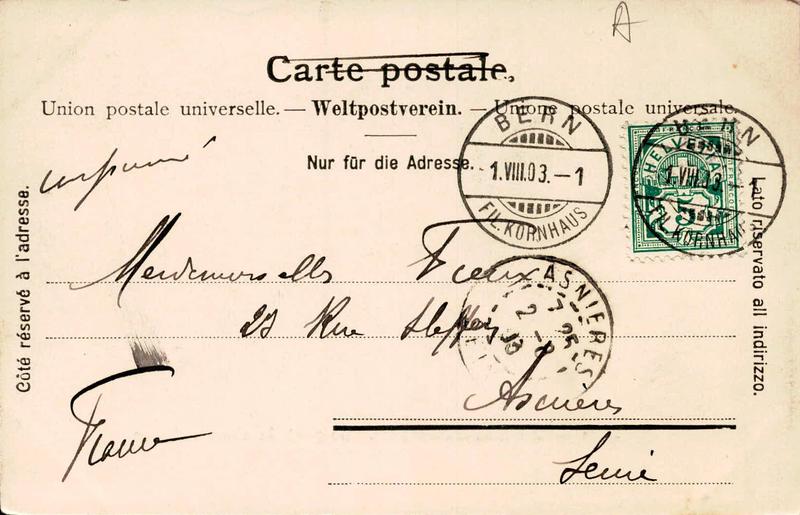 A
Carte postale.
Union postale universelle. — Weltpostverein. — Unione postale universale.
Nur für die Adresse.
imprimé
Côté réservé à l'adresse.
Lato riservato all indirizzo.
BERN
1.VIII.03.—1
FIL. KORNHAUS
HELVETIA
5
BERN
1.VIII.03.—1
FIL. KORNHAUS
Mesdemoiselles
23 Rue Steffen
ASNIERES
7 25
2 -8
03
Asnieres
France
Seine